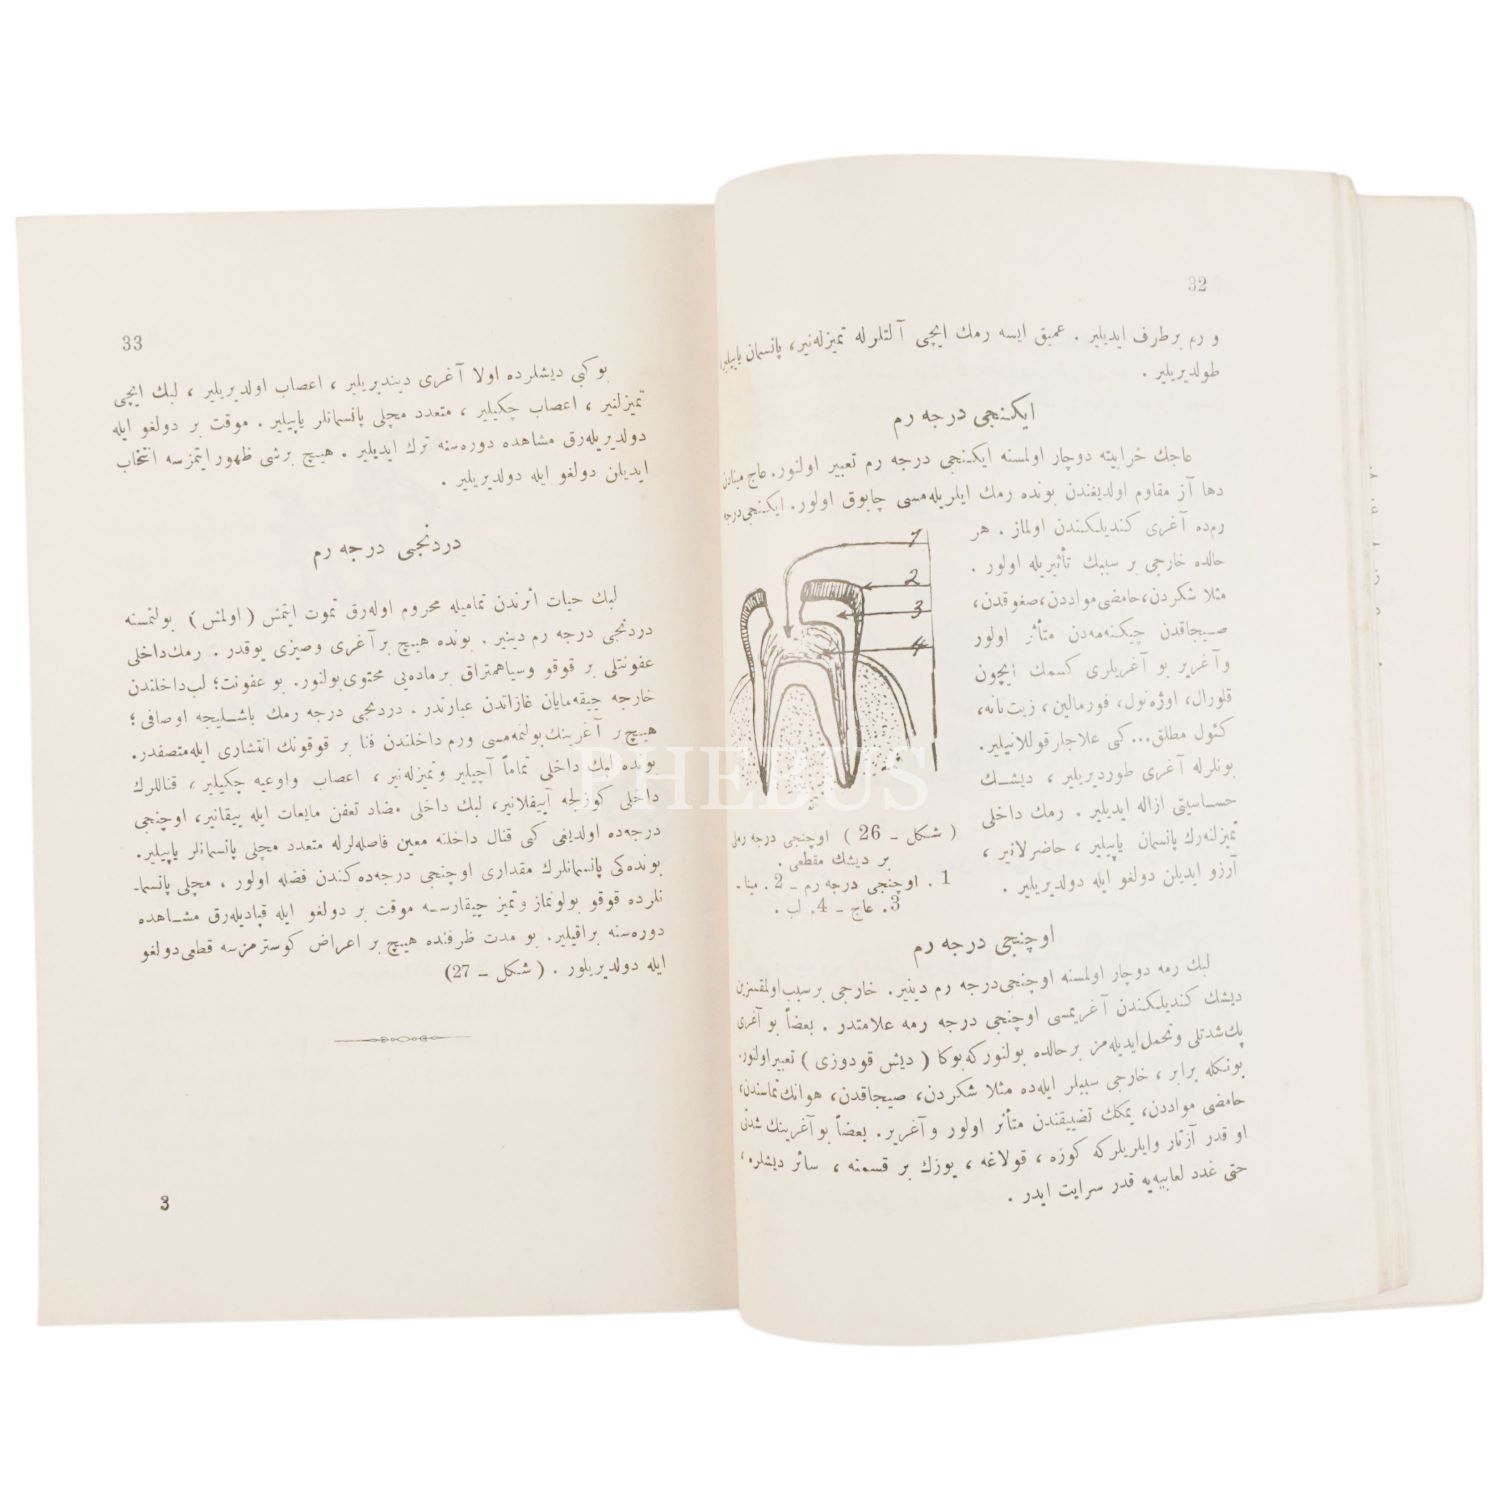 32
و رم برطرف ایدیلیر . عمیق ایسه رمك ایچی آلتلرله تمیزله‌نیر، پانسمان یاپیلیر،
طولدیریلیر .
ایكنجی درجه رم
عاجك خرابیته دوچار اولمسنه ایكنجی درجه رم تعبیر اولنور. عاج مینادن
دها آز مقاوم اولدیغندن بونده رمك ایلریله‌مسی چابوق اولور. ایكنجی درجه
رم‌ده آغری كندیلكندن اولماز . هر
حالده خارجی بر سببك تأثیریله اولور .
مثلا شكردن، حامضی مواددن، صغوقدن،
صیجاقدن چیكنه‌مه‌دن متأثر اولور
وآغریر بو آغریلری كسمك ایچون
قلورال، اوژه‌نول، فورمالین، زیت نانه،
كئول مطلق... كبی علاجلر قوللانیلیر.
بونلرله آغری طوردیریلیر ، دیشك
حساسیتی ازاله ایدیلیر . رمك داخلی
تمیزلنه‌رك پانسمان یاپیلیر ، حاضرلانیر ،
آرزو ایدیلن دولغو ایله دولدیریلیر .
1
2
3
4
( شكل ـ 26 ) اوچنجی درجه رملی
بر دیشك مقطعی .
1 . اوچنجی درجه رم ـ 2 . مینا .
3. عاج ـ 4. لب .
اوچنجی درجه رم
لبك رمه دوچار اولمسنه اوچنجی درجه رم دینیر. خارجی بر سبب اولمقسزین
دیشك كندیلكندن آغریمسی اوچنجی درجه رمه علامتدر . بعضاً بو آغری
پك شدتلی وتحمل ایدیله‌مز بر حالده بولنور كه بوكا ( دیش قودوزی ) تعبیر اولنور.
بونكله برابر ، خارجی سببلر ایله‌ده مثلا شكردن، صیجاقدن، هوانك تماسندن،
حامضی مواددن، یمكك تضییقندن متأثر اولور وآغریر. بعضاً بو آغرینك شدتی
او قدر آرتار وایلریلر كه كوزه ، قولاغه ، یوزك بر قسمنه ، سائر دیشلره ،
حتی غدد لعابیه‌یه قدر سرایت ایدر .
33
بو كبی دیشلرده اولا آغری دیندیریلیر ، اعصاب اولدیریلیر ، لبك ایچی
تمیزلنیر ، اعصاب چكیلیر ، متعدد مچلی پانسمانلر یاپیلیر . موقت بر دولغو ایله
دولدیریله‌رق مشاهده دوره‌سنه ترك ایدیلیر . هیچ برشی ظهور ایتمزسه انتخاب
ایدیلن دولغو ایله دولدیریلیر .
دردنجی درجه رم
لبك حیات اثرندن تمامیله محروم اوله‌رق تموت ایتمش ( اولمش ) بولنمسنه
دردنجی درجه رم دینیر . بونده هیچ بر آغری وصیزی یوقدر . رمك داخلی
عفونتلی بر قوقو وسیاهمتراق بر ماده‌یی محتوی بولنور. بو عفونت؛ لب داخلندن
خارجه چیقه‌مایان غازاتدن عبارتدر . دردنجی درجه رمك باشلیجه اوصافی؛
هیچ بر آغرینك بولنمه‌مسی ورم داخلندن فنا بر قوقونك انتشاری ایله متصفدر.
بونده لبك داخلی تماماً آچیلیر وتمیزله‌نیر ، اعصاب واوعیه چكیلیر ، قناللرك
داخلی كوزلجه آییقلانیر، لبك داخلی مضاد تعفن مایعات ایله ییقانیر، اوچنجی
درجه‌ده اولدیغی كبی قنال داخلنه معین فاصله‌لرله متعدد مچلی پانسمانلر یاپیلیر.
بونده‌كی پانسمانلرك مقداری اوچنجی درجه‌ده‌كندن فضله اولور ، مچلی پانسما-
نلرده قوقو بولونماز وتمیز چیقارسه موقت بر دولغو ایله قپادیله‌رق مشاهده
دوره‌سنه براقیلیر. بو مدت ظرفنده هیچ بر اعراض كوسترمزسه قطعی دولغو
ایله دولدیریلور . ( شكل ـ 27)
3
PHEBUS